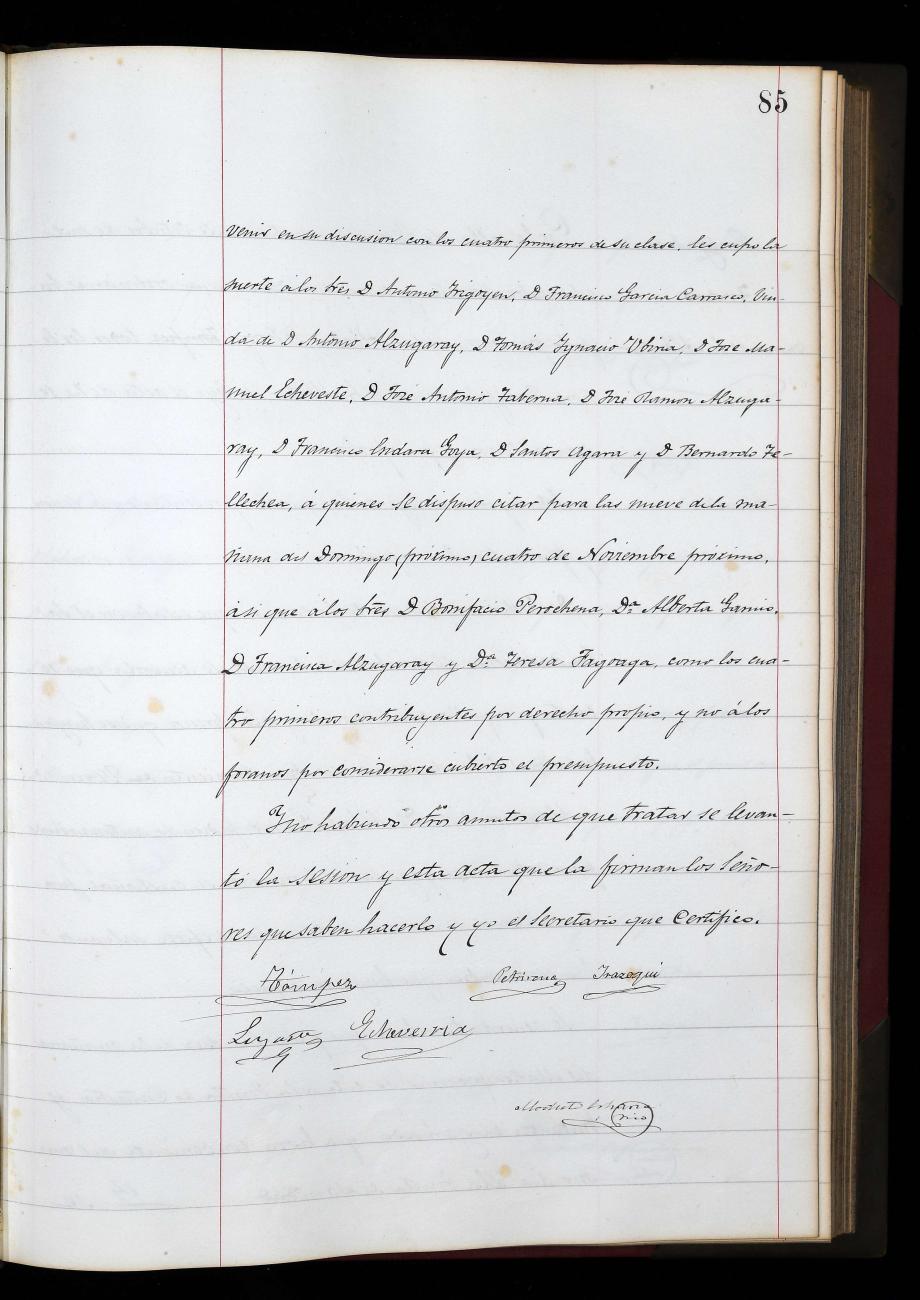 85
venir en su discusion con los cuatro primeros de su clase, les cupo la
suerte á los tres D Antonio Irigoyen, D Francisco Garcia Carrasco, Viu-
da de D Antonio Alzugaray, D Tomás Ygnacio Ubiria, D Jose Ma-
nuel Echeveste, D José Antonio Taberna, D José Ramon Alzuga-
ray, D Francisco Indara Goya, D Santos Agara y D Bernardo Te-
llechea, á quienes se dispuso citar para las nueve de la ma-
ñana del Domingo (proximo) cuatro de Noviembre proximo,
asi que á los tres D Bonifacio Perochena, Dª Alberta Gamio,
D Francisca Alzugaray y Dª Teresa Fagoaga, como los cua-
tro primeros contribuyentes por derecho propio, y no á los
foranos por considerarse cubierto el presupuesto.
Y no habiendo otros asuntos de que tratar se levan-
tó la sesion y esta acta que la firman los Seño-
res que saben hacerlo y yo el Secretario que Certifico.
Petrirena Irazoqui
Echeverria